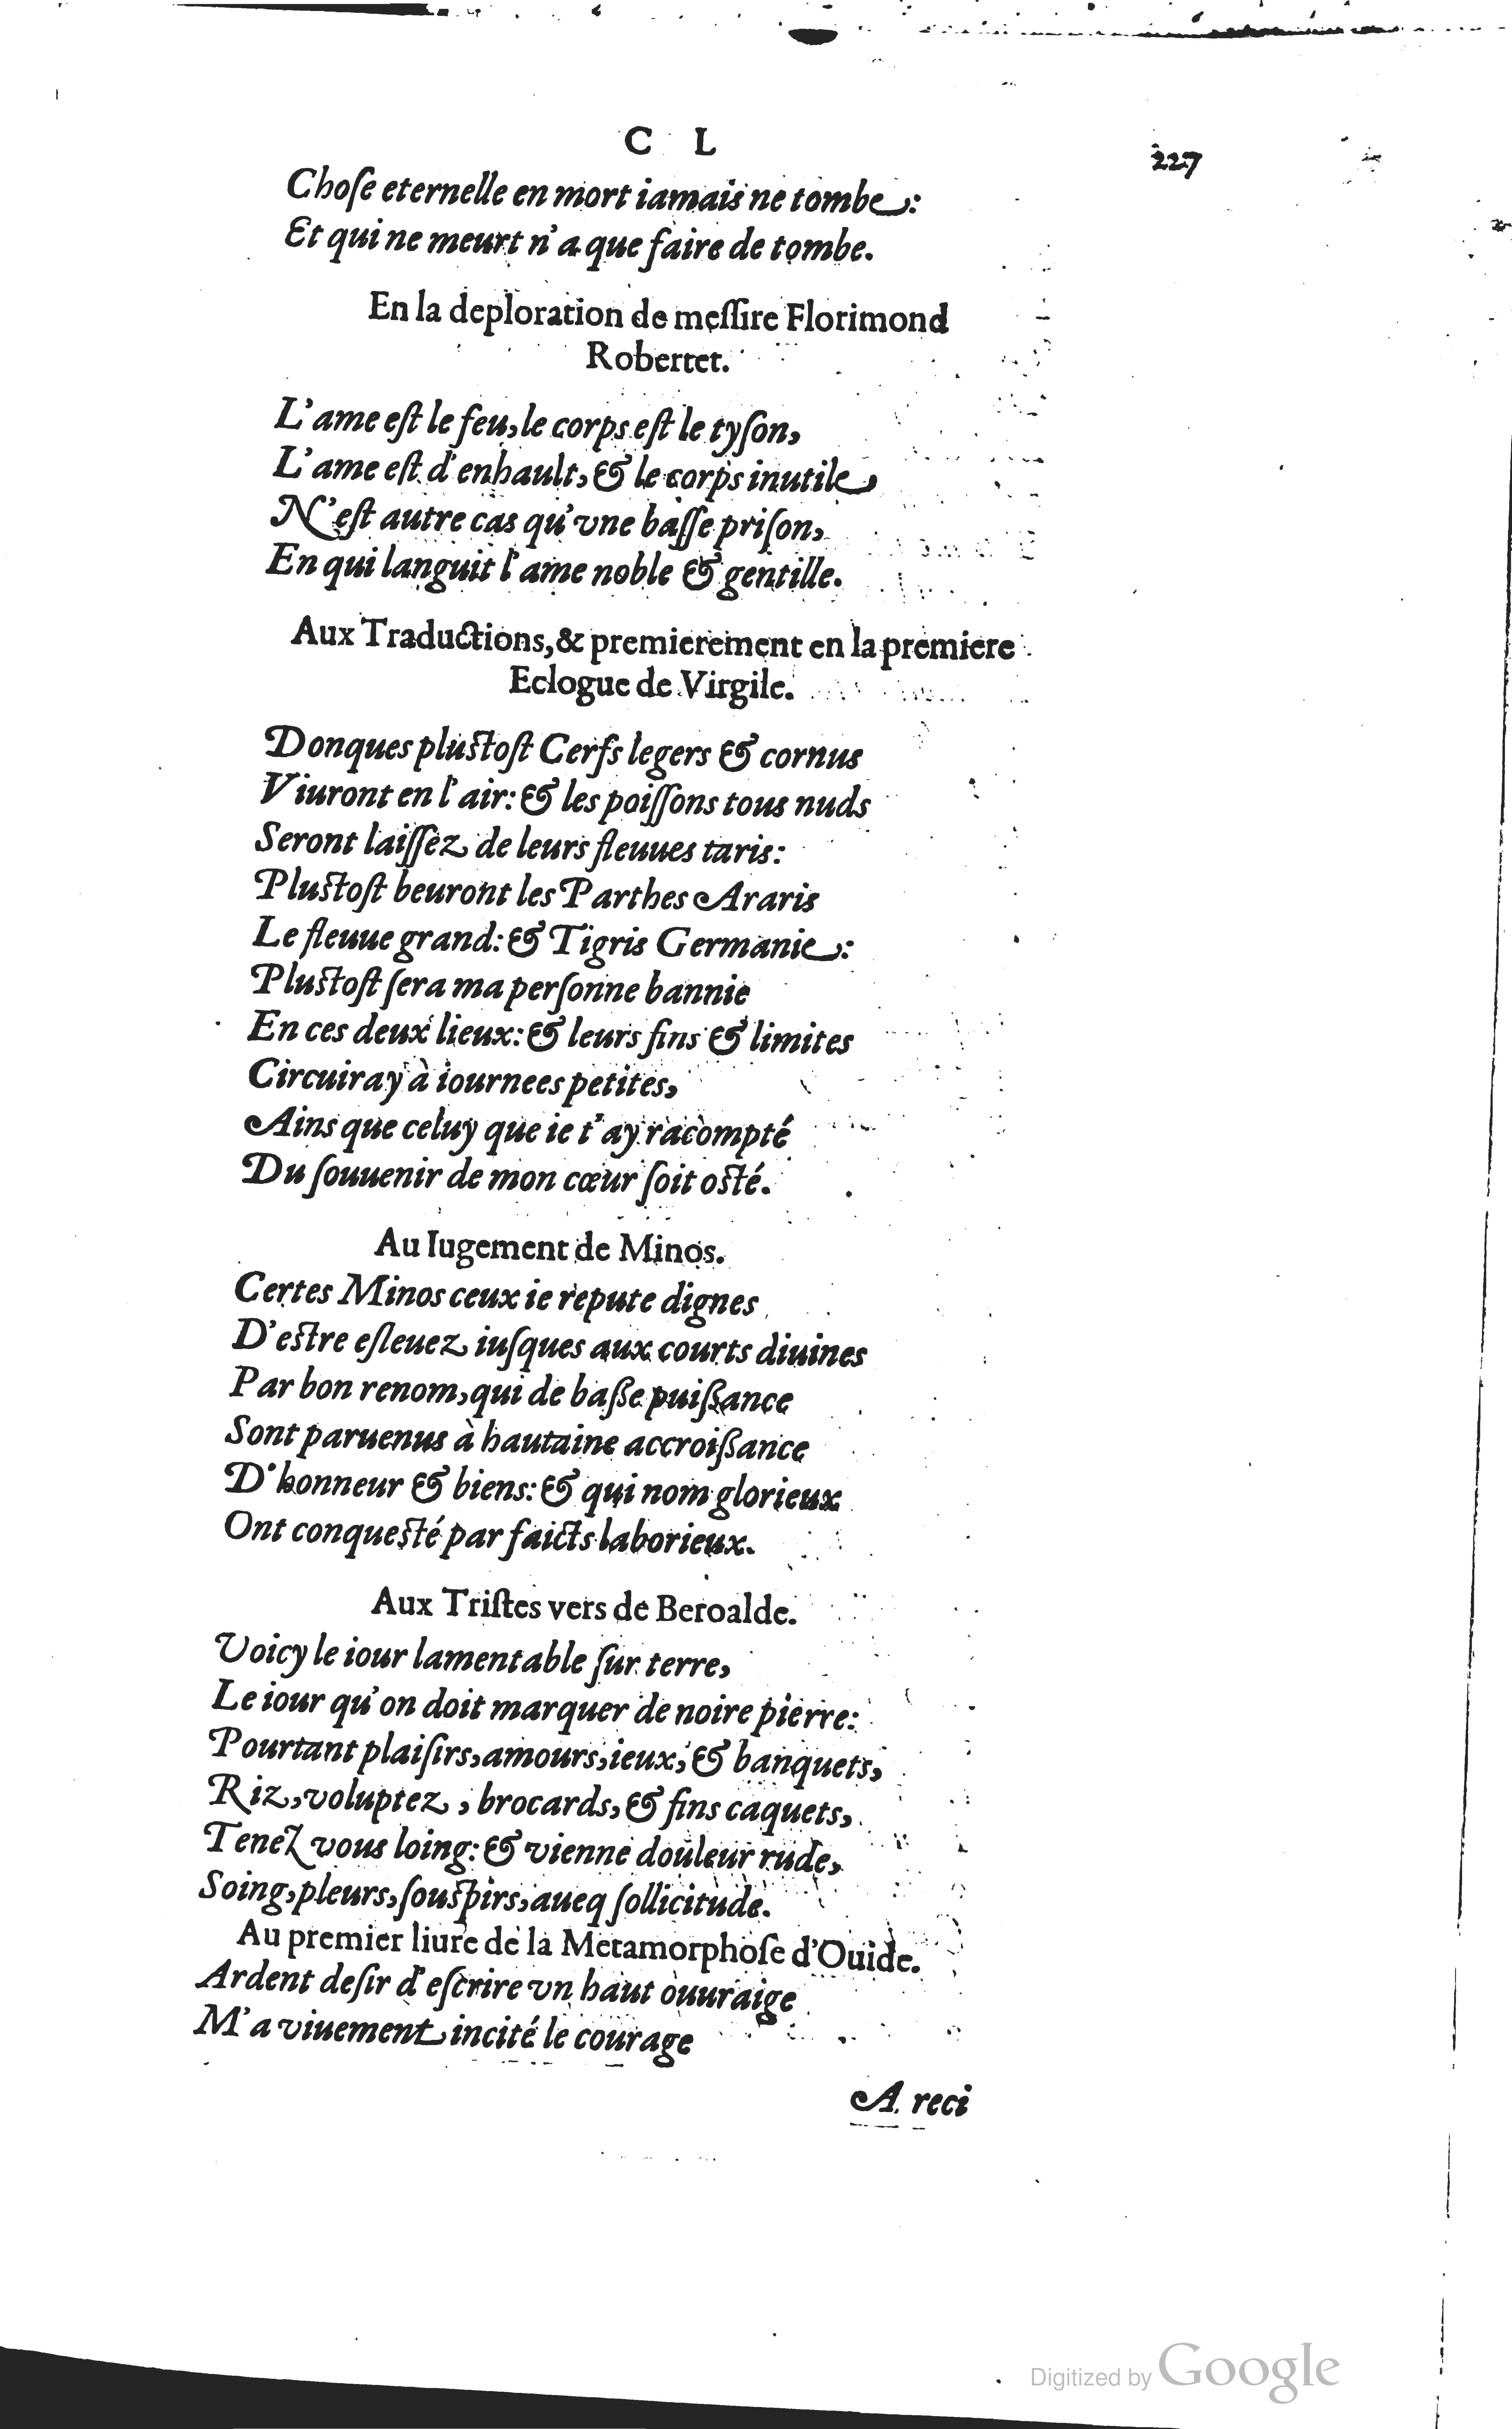 C L
227
Choſe eternelle en mort iamais ne tombe:
Et qui ne meurt n'a que faire de tombe.
En la deploration de meſſire Florimond
Robertet.
L'ame eſt le feu, le corps eſt le tyſon,
L'ame eſt d'enhault, & le corps inutile,
N'eſt autre cas qu'vne baſſe priſon,
En qui languit l'ame noble & gentille.
Aux Traductions, & premierement en la premiere
Eclogue de Virgile.
Donques pluſtoſt Cerfs legers & cornus
Viuront en l'air: & les poiſſons tous nuds
Seront laiſſez de leurs fleuues taris:
Pluſtoſt beuront les Parthes Araris
Le fleuue grand: & Tigris Germanie:
Pluſtoſt ſera ma perſonne bannie
En ces deux lieux: & leurs fins & limites
Circuiray à iournees petites,
Ains que celuy que ie t'ay racompté
Du ſouuenir de mon cœur ſoit oſté.
Au Iugement de Minos.
Certes Minos ceux ie repute dignes
D'eſtre eſleuez iuſques aux courts diuines
Par bon renom, qui de baſſe puiſſance
Sont paruenus à hautaine accroiſſance
D'honneur & biens: & qui nom glorieux
Ont conqueſté par faicts laborieux.
Aux Triſtes vers de Beroalde.
Voicy le iour lamentable ſur terre,
Le iour qu'on doit marquer de noire pierre:
Pourtant plaiſirs, amours, ieux, & banquets,
Riz, voluptez, brocards, & fins caquets,
Tenez vous loing: & vienne douleur rude,
Soing, pleurs, ſouſpirs, aueq ſollicitude.
Au premier liure de la Metamorphoſe d'Ouide.
Ardent deſir d'eſcrire vn haut ouuraige
M'a viuement incité le courage
A reci
Digitized by Google